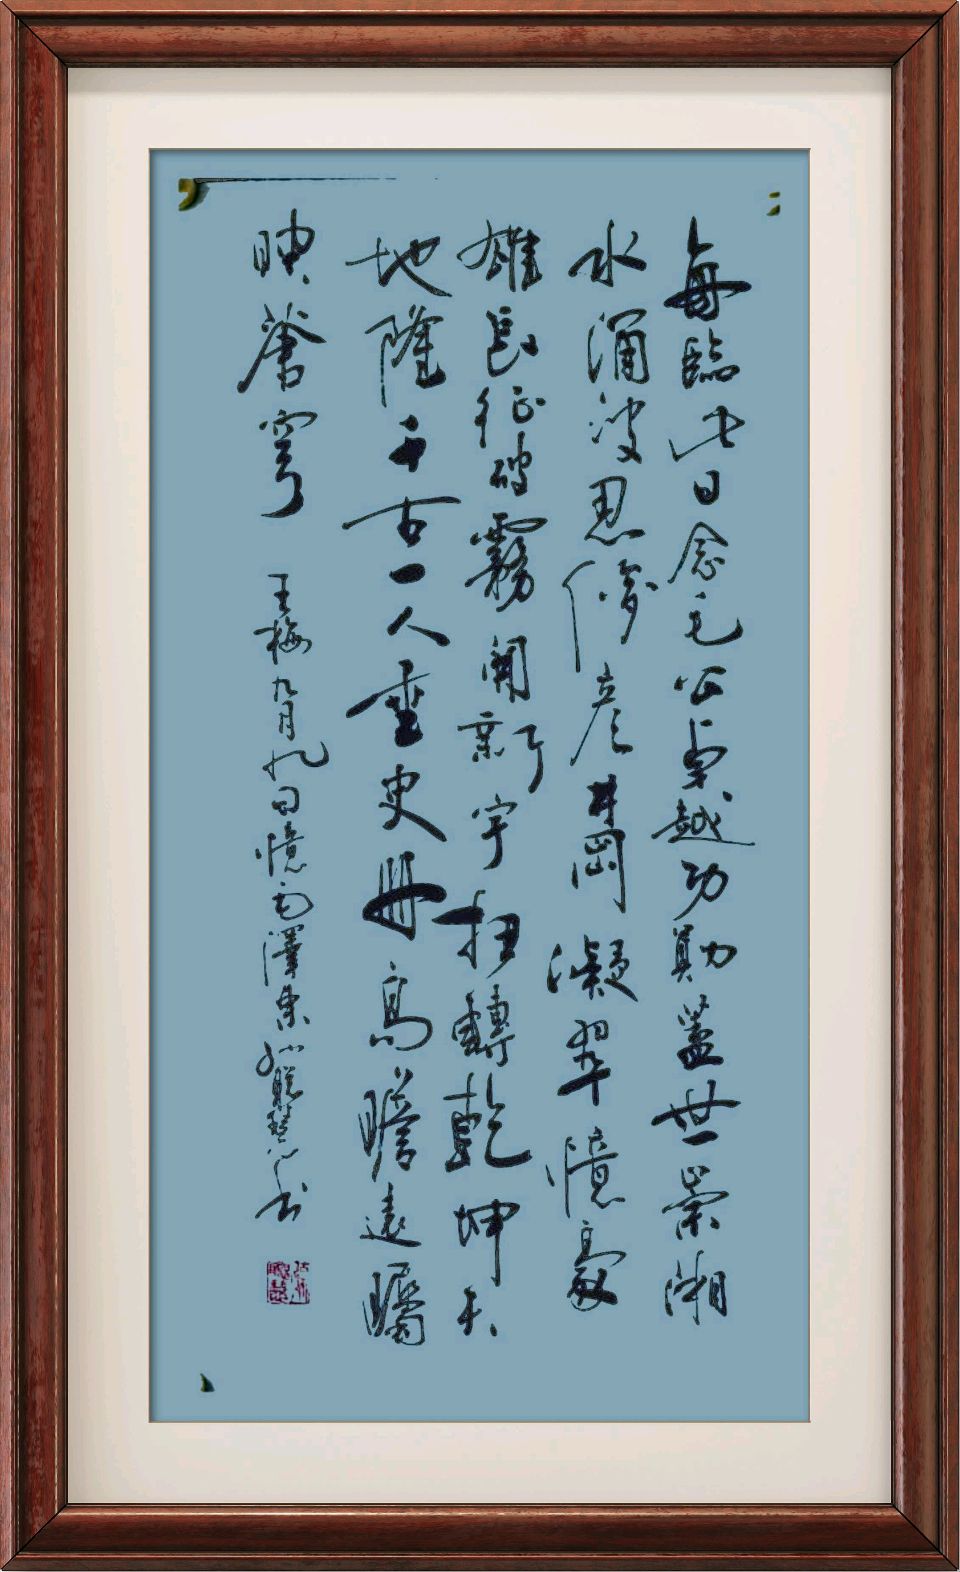 每臨此日念毛公卓越功勛蓋世崇湘
水涌波思俊彥井岡凝翠憶豪
雄長征破霧開新宇扭轉乾坤天
地隆千古一人垂史冊高瞻遠矚
映蒼穹
王梅九月九日憶毛澤東 聰慧 书